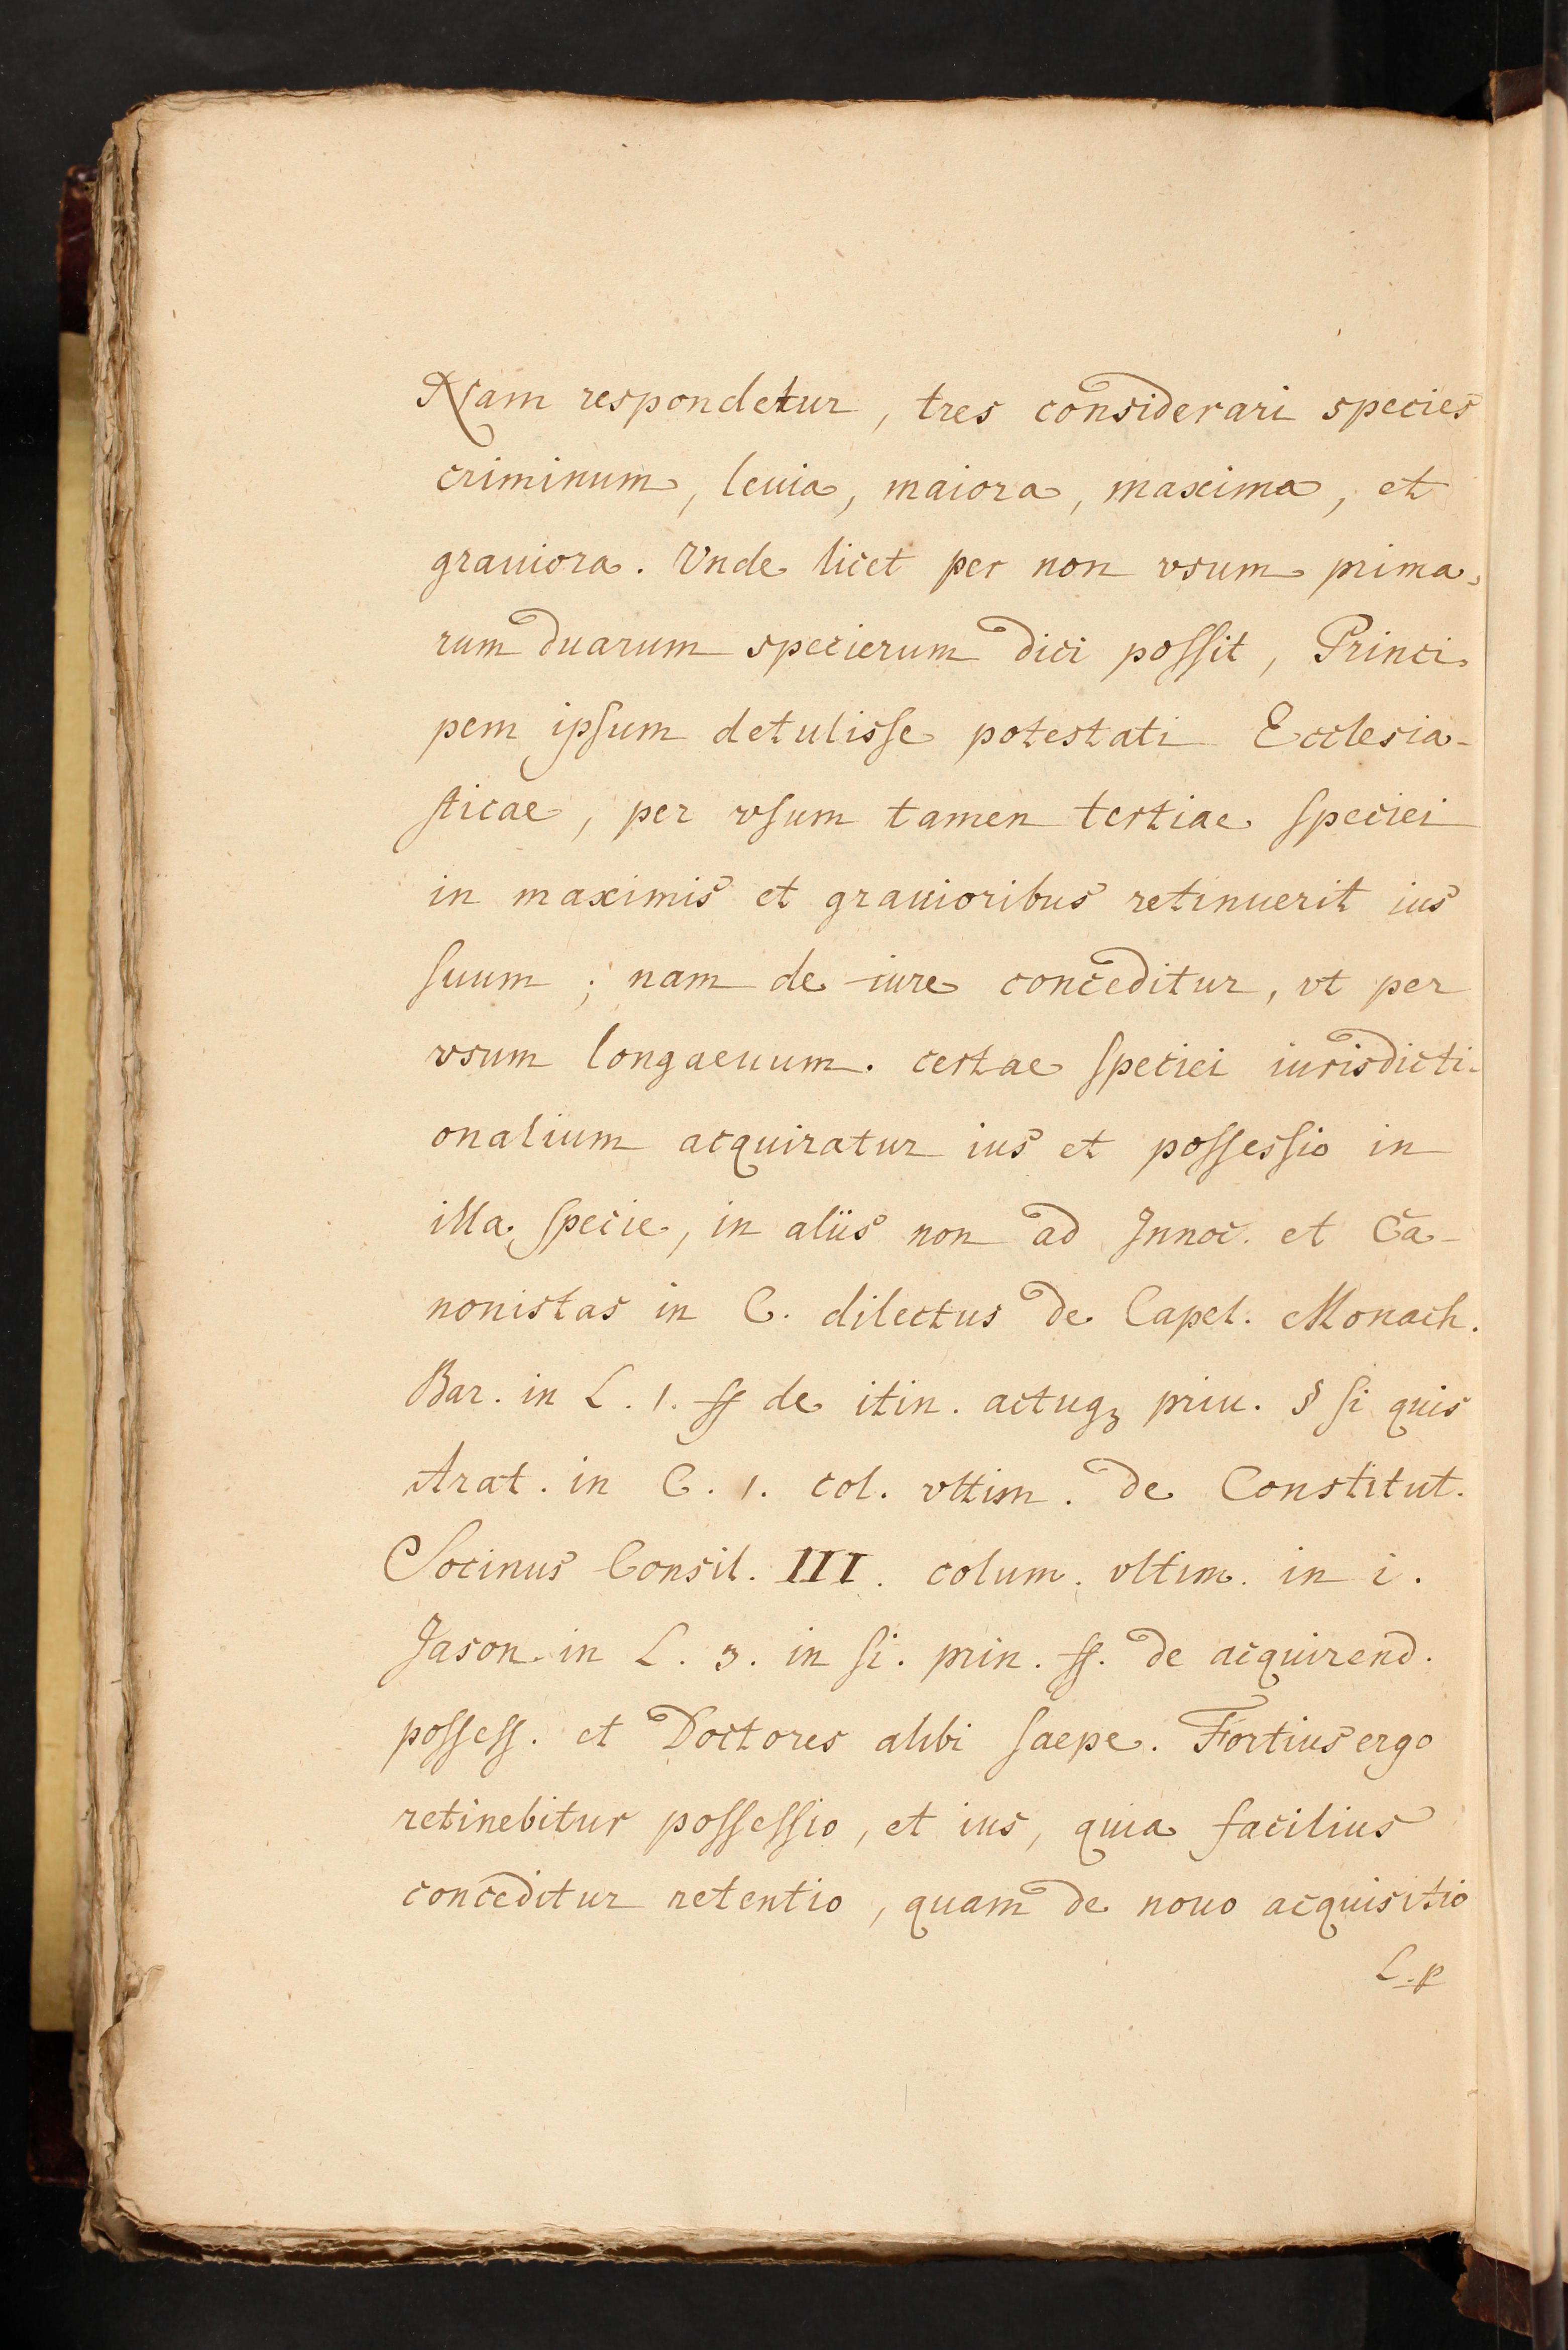 Nam respondetur, tres considerari species
criminum, leuia, maiora, maxima, et
grauiora. Vnde licet per non vsum prima-
rum duarum specierum dici poſſit, Princi-
pem ipſum detulisſe potestati Ecclesia-
ſticae, per vſum tamen tertiae ſpeciei
in maximis et grauioribus retinuerit ius
ſuum; nam de iure conceditur, vt per
vsum longaeuum. certae ſpeciei iurisdicti-
onalium acquiratur ius et poſſesſio in
illa ſpecie, in aliis non ad Innoc. et Ca-
nonistas in C. dilectus de Capel. Monach.
Bar. in L. 1. ff de itin. actuqȝ priu. § ſi quis
Arat. in C. 1. col. vltim. de Constitut.
Socinus Consil. III. colum. vltim. in i.
Jason. in L. 3. in ſi. prin. ff. de acquirend.
poſſeſſ. et Doctores alibi ſaepe. Fortius ergo
retinebitur poſſeſſio, et ius, quia facilius
conceditur retentio, quam de nouo acquisitio
L. p